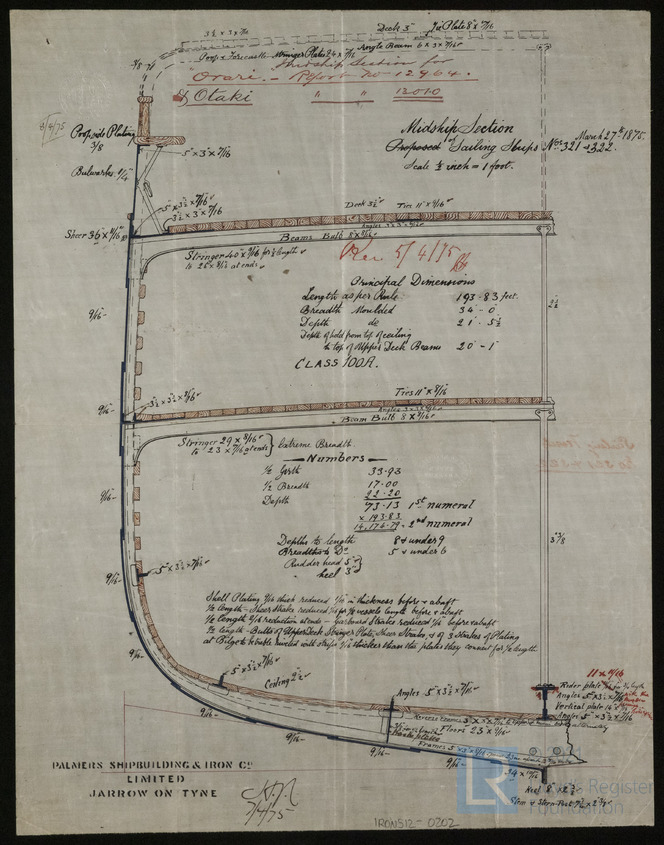 Deck 3" Tie Plate 8 x 7/16
3½ x 3 x 7/16
Poop & Forecastle Stringer Plates 24 x 7/16 Angle Beam 6 x 3 x 7/16
Midship Section for
Orari. - Report No 12964.
& Otaki " " 12010
3/4/75
Midship Section
Proposed Sailing Ships Nos. 321 & 322
March 27th 1875.
Scale ½ inch = 1 foot.
Topside Plating
3/8
5" x 3" x 7/16
Bulwarks 4/4
5" x 3½ x 7/16
3½ x 3 x 7/16
Deck 3½ Ties 11" x 9/16
Angles 3 x 3 x 7/16
Sheer 36 x 11/16
Beams Bulb 8 x 8/16
Stringer 40" x 9/16 for ½ length
to 26 x 8/16 at ends
Rec 5/4/75
Principal Dimensions
Length as per Rule 193.83 feet.
Breadth Moulded 34 - 0
Depth do 21 - 5½
Depth of hold from top of ceiling
to top of Upper Deck Beams 20 - 1
CLASS 100A.
9/16
2½
Ties 11" x 8/16
3½ x 3½ x 7/16
Angles 3 x 3 x 7/16
9/16
Beam Bulb 8 x 8/16
Stringer 29 x 8/16
to 23 x 7/16 at ends
Extreme Breadth
Numbers
½ Girth 33.93
½ Breadth 17.00
Depth 22.20
73.13 1st numeral
x 193.83
14,174.79 = 2nd numeral
9/16
Depths to length 8 & under 9
Breadths to Do 5 & under 6
Rudder head 5"
heel 3"
3⅜
9/16
5" x 3½ x 7/16
Shell Plating 9/16 thick reduced 1/16 in thickness before & abaft
½ length - Sheerstrake reduced 1/16 for ½ vessels length before & abaft
½ length 2/16 reduction at ends - Garboard Strakes reduced 1/16 before & abaft
½ length - Butts of Upper Deck Stringer Plate, Sheer Strake, & of 3 Strakes of Plating
at Bilge to be treble riveted with straps 1/16 thicker than the plates they connect for ½ length
9/16
5" x 3½ x 7/16
Ceiling 2½
Angles 5" x 3½ x 7/16
11 x 11/16
Rider plate
Angles 5" x 3½ x 7/16
Vertical plate
Angles 5" x 3½ x 7/16
Reverse Frames 3 x
Floors 23 x 9/16
Frames 5 x 3 x
9/16
9/16
9/16
9/16
34 x 11/16
Keel 8 x 2¾
Stem & Stern Post 7½ x 2¾
PALMERS SHIPBUILDING & IRON Co
LIMITED
JARROW ON TYNE
7/4/75
IRONS12-0202
LR
Lloyd's Register
Foundation